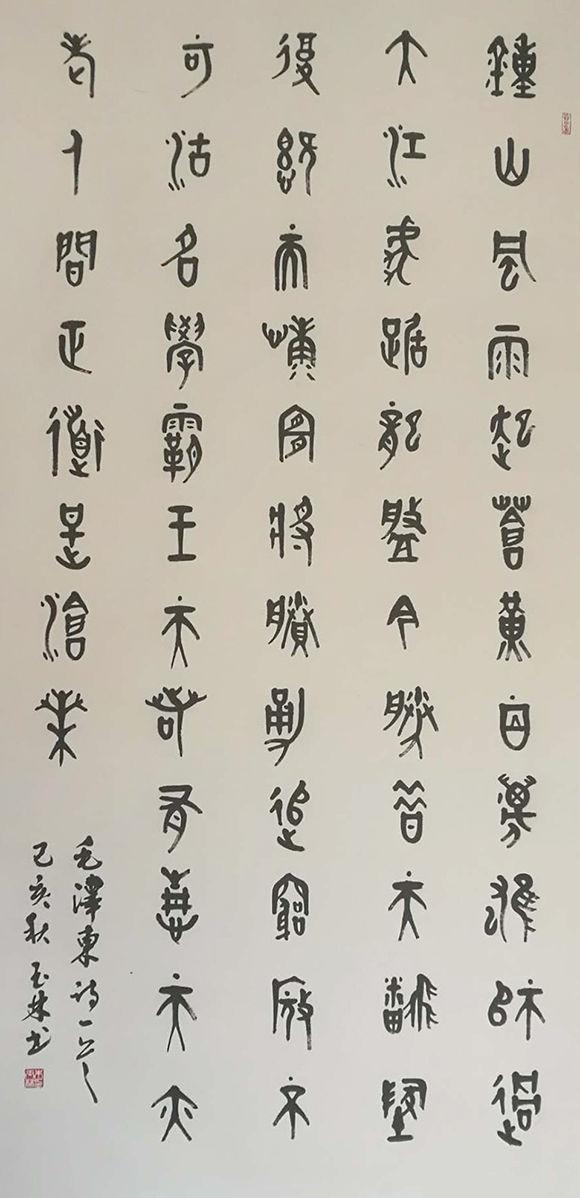 鍾山風雨起蒼黃百萬雄師過
大江虎踞龍盤今勝昔天翻地
復慨而慷宜將賸勇追窮寇不
可沽名學霸王天若有情天亦
老人間正道是滄桑
毛澤東詩一首
己亥秋玉林書